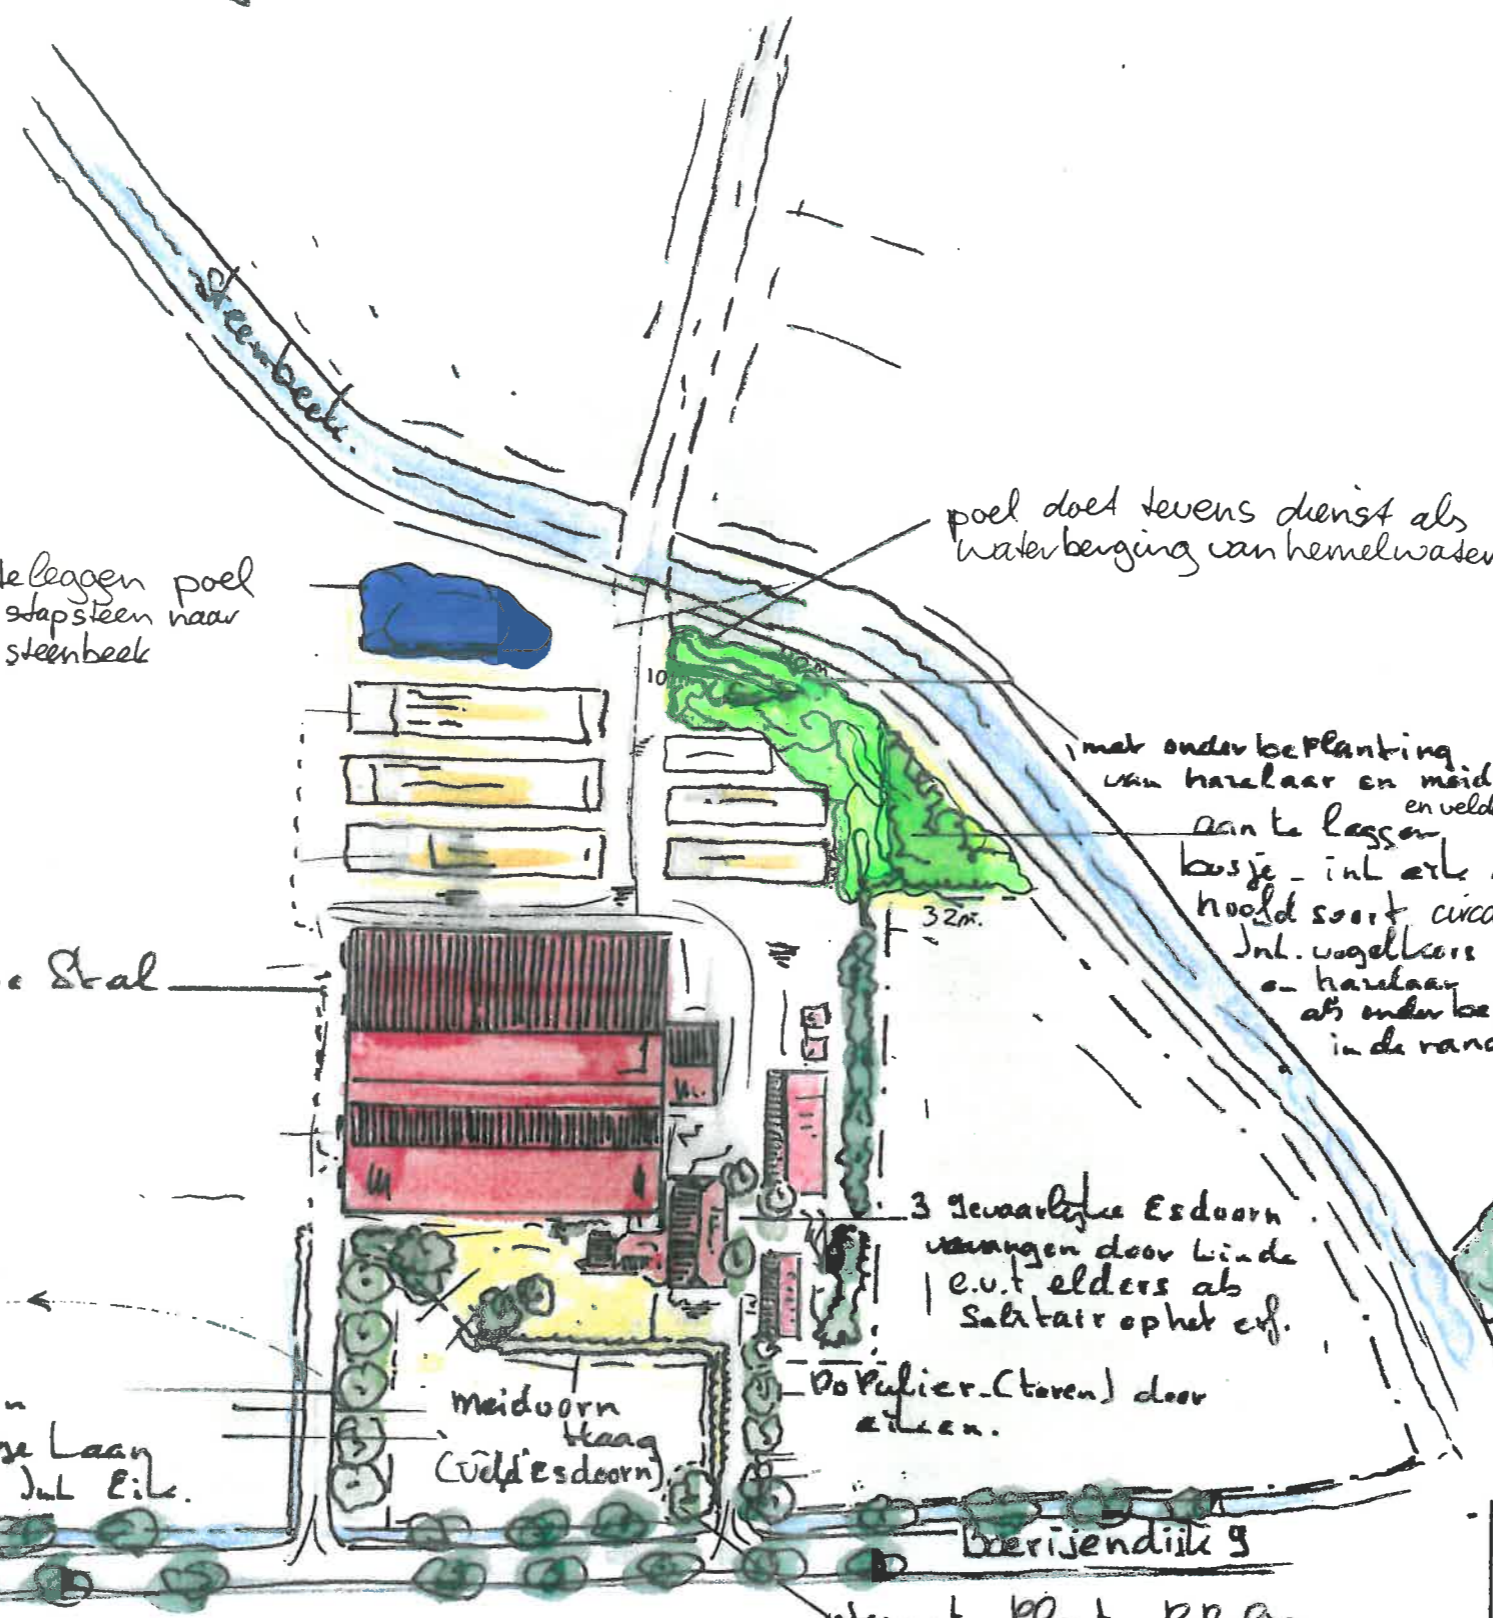 Steenbeek.
poel doet tevens dienst als
waterberging van hemelwater
te leggen poel
stapsteen naar
steenbeek
10
40m
met onderbeplanting
van hazelaar en meid
en veld
aan te leggen
bosje - inl
hoofd soort circa
Inl. vogelkers
en hazelaar
als onderbe
in de rand
32m.
Stal
3 gevaarlijke Esdoorn
vervangen door Linde
e.v.t elders als
Solitair op het erf.
Populier (toren) door
eiken.
meidoorn
Haag
(Veld Esdoorn)
n
se Laan
Inl Eik.
Boerijendijk 9